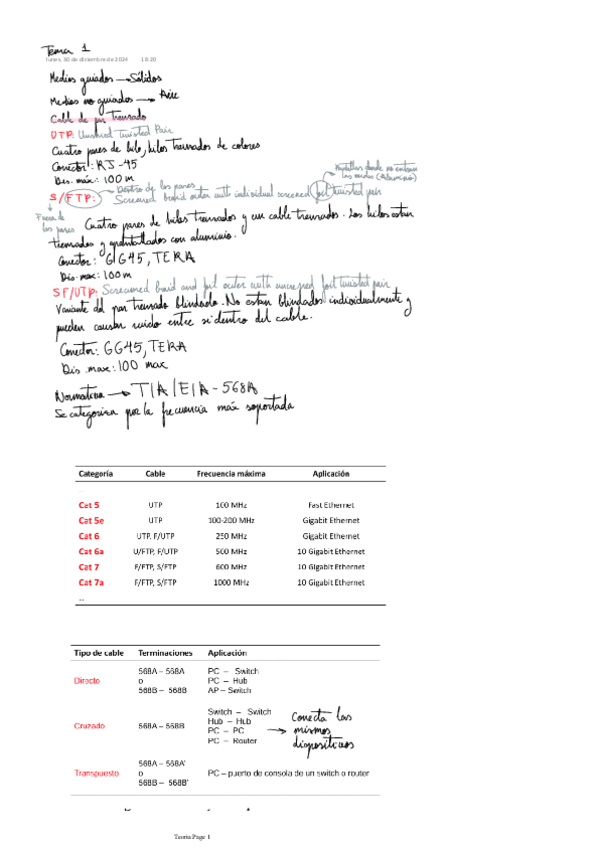 Tema 1
lunes, 30 de diciembre de 2024 18:20
Medios guiados → Sólidos
Medios no guiados → Aire
Cable de par trenzado
UTP: Unshield Twisted Pair
Cuatro pares de hilo, hilos trenzados de colores
Conector: RJ-45
Dis. máx: 100 m
Dentro de los pares
S/FTP: Screened braid outer with individual screened foil twisted pair
Fuera de
los pares
Cuatro pares de hilos trenzados y un cable trenzados. Los hilos estan
trenzados y apantallados con aluminio.
Conector: GG45, TERA
Dis. max: 100m
SF/UTP: Screamed braid and foil outer with unscreened foil twisted pair
Variante del par trenzado blindado. No estan blindados individualmente y
pueden causar ruido entre si dentro del cable.
Conector: GG45, TERA
Dis. max: 100 max
Normativa → TIA/EIA-568A
Se categoriza por la frecuencia máx soportada
Categoría Cable Frecuencia máxima Aplicación
Cat 5 UTP 100 MHz Fast Ethernet
Cat 5e UTP 100-200 MHz Gigabit Ethernet
Cat 6 UTP, F/UTP 250 MHz Gigabit Ethernet
Cat 6a U/FTP, F/UTP 500 MHz 10 Gigabit Ethernet
Cat 7 F/FTP, S/FTP 600 MHz 10 Gigabit Ethernet
Cat 7a F/FTP, S/FTP 1000 MHz 10 Gigabit Ethernet
...
Tipo de cable Terminaciones Aplicación
Directo
568A – 568A
o
568B – 568B
PC – Switch
PC – Hub
AP – Switch
Cruzado
568A – 568B
Switch – Switch
Hub – Hub
PC – PC
PC – Router
→ Conecta los
mismos
dispositivos
Transpuesto
568A – 568A'
o
568B – 568B'
PC – puerto de consola de un switch o router
Teoría Page 1